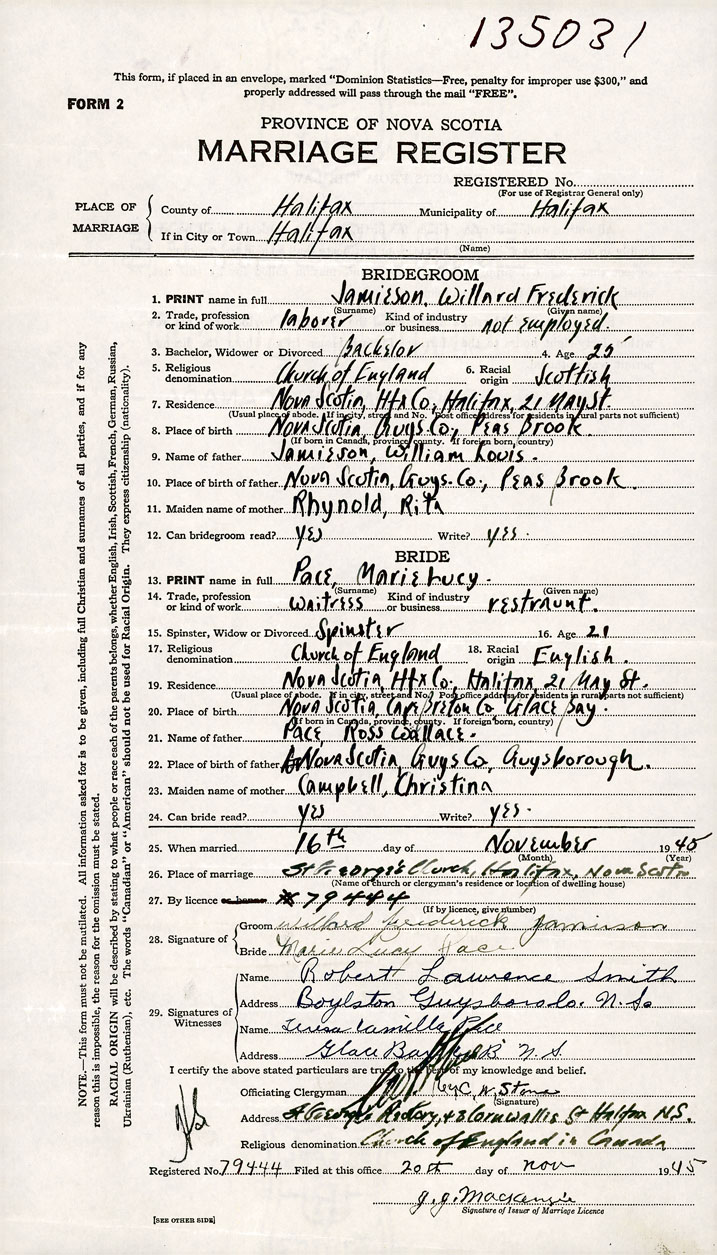 135031
This form, if placed in an envelope, marked "Dominion Statistics—Free, penalty for improper use $300," and
properly addressed will pass through the mail "FREE".
FORM 2
PROVINCE OF NOVA SCOTIA
MARRIAGE REGISTER
REGISTERED No.
(For use of Registrar General only)
PLACE OF MARRIAGE
County of Halifax Municipality of Halifax
If in City or Town Halifax
(Name)
BRIDEGROOM
1. PRINT name in full Jamieson, Willard Frederick
(Surname) (Given name)
2. Trade, profession or kind of work laborer Kind of industry or business not employed.
3. Bachelor, Widower or Divorced Bachelor 4. Age 25
5. Religious denomination Church of England 6. Racial origin Scottish
7. Residence Nova Scotia, Hfx Co, Halifax, 21 May St.
(Usual place of abode. If in city, street and No. Post office address for residents in rural parts not sufficient)
8. Place of birth Nova Scotia, Guys Co., Peas Brook
(If born in Canada, province, county. If foreign born, country)
9. Name of father Jamieson, William Louis.
10. Place of birth of father Nova Scotia, Guys. Co., Peas Brook.
11. Maiden name of mother Rhynold, Rita
12. Can bridegroom read? yes Write? yes.
BRIDE
13. PRINT name in full Pace, Marie Lucy.
(Surname) (Given name)
14. Trade, profession or kind of work waitress Kind of industry or business restraunt.
15. Spinster, Widow or Divorced Spinster 16. Age 21
17. Religious denomination Church of England 18. Racial origin English.
19. Residence Nova Scotia, Hfx Co., Halifax, 21 May St.
(Usual place of abode. If in city, street and No. Post office address for residents in rural parts not sufficient)
20. Place of birth Nova Scotia, Cape Breton Co, Glace Bay.
(If born in Canada, province, county. If foreign born, country)
21. Name of father Pace, Ross Wallace.
22. Place of birth of father Nova Scotia, Guys Co, Guysborough.
23. Maiden name of mother Campbell, Christina
24. Can bride read? yes Write? yes.
25. When married 16th day of November 1945
(Month) (Year)
26. Place of marriage St George's Church, Halifax, Nova Scotia
(Name of church or clergyman's residence or location of dwelling house)
27. By licence or banns 79444
(If by licence, give number)
28. Signature of
Groom Willard Frederick Jamieson
Bride Marie Lucy Pace
29. Signatures of Witnesses
Name Robert Lawrence Smith
Address Boylston Guysboro Co. N.S.
Name Teresa Camilla Pace
Address Glace Bay C.B. N.S.
I certify the above stated particulars are true to the best of my knowledge and belief.
Officiating Clergyman W. Stone
(Signature)
Address St George's Rectory, 43 Cornwallis St Halifax N.S.
Religious denomination Church of England in Canada
Registered No. 79444 Filed at this office 20th day of Nov 1945
J. G. Mackenzie
Signature of Issuer of Marriage Licence
[SEE OTHER SIDE]
NOTE.—This form must not be mutilated. All information asked for is to be given, including full Christian and surnames of all parties, and if for any
reason this is impossible, the reason for the omission must be stated.
RACIAL ORIGIN will be described by stating to what people or race each of the parents belongs, whether English, Irish, Scottish, French, German, Russian,
Ukrainian (Ruthenian), etc. The words "Canadian" or "American" should not be used for Racial Origin. They express citizenship (nationality).